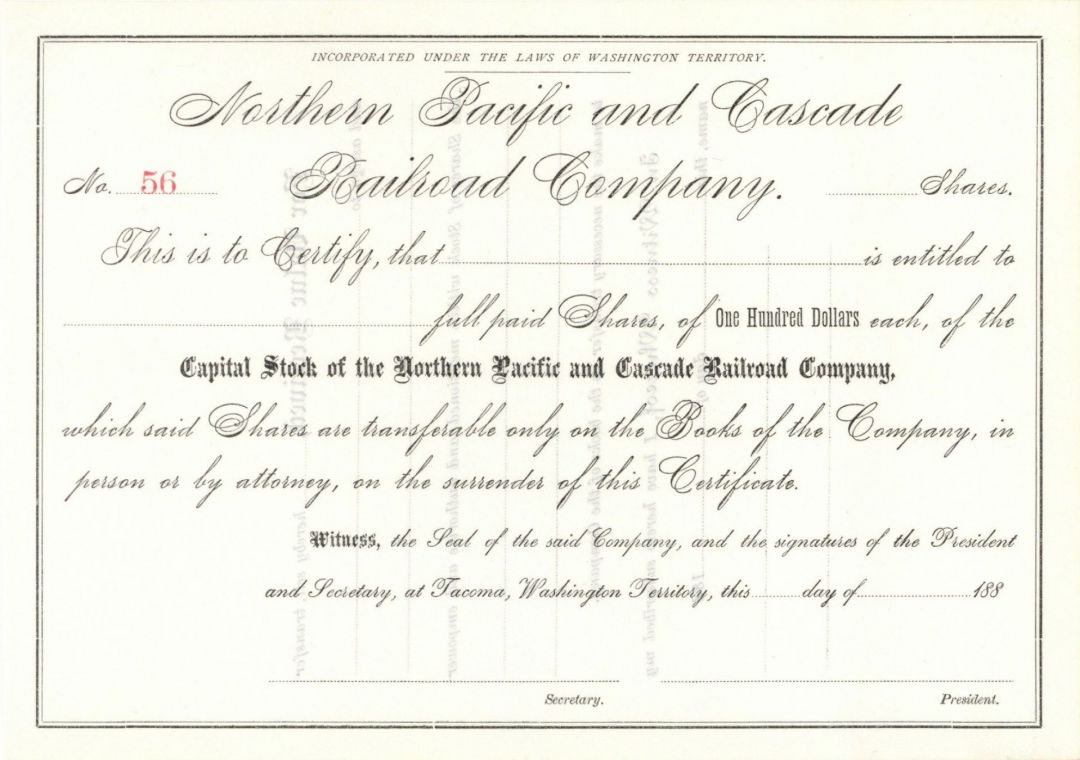 INCORPORATED UNDER THE LAWS OF WASHINGTON TERRITORY.
Northern Pacific and Cascade
No. 56 Railroad Company. Shares.
This is to Certify, that is entitled to
full paid Shares, of One Hundred Dollars each, of the
Capital Stock of the Northern Pacific and Cascade Railroad Company,
which said Shares are transferable only on the Books of the Company, in
person or by attorney, on the surrender of this Certificate.
Witness, the Seal of the said Company, and the signatures of the President
and Secretary, at Tacoma, Washington Territory, this day of 188
Secretary. President.